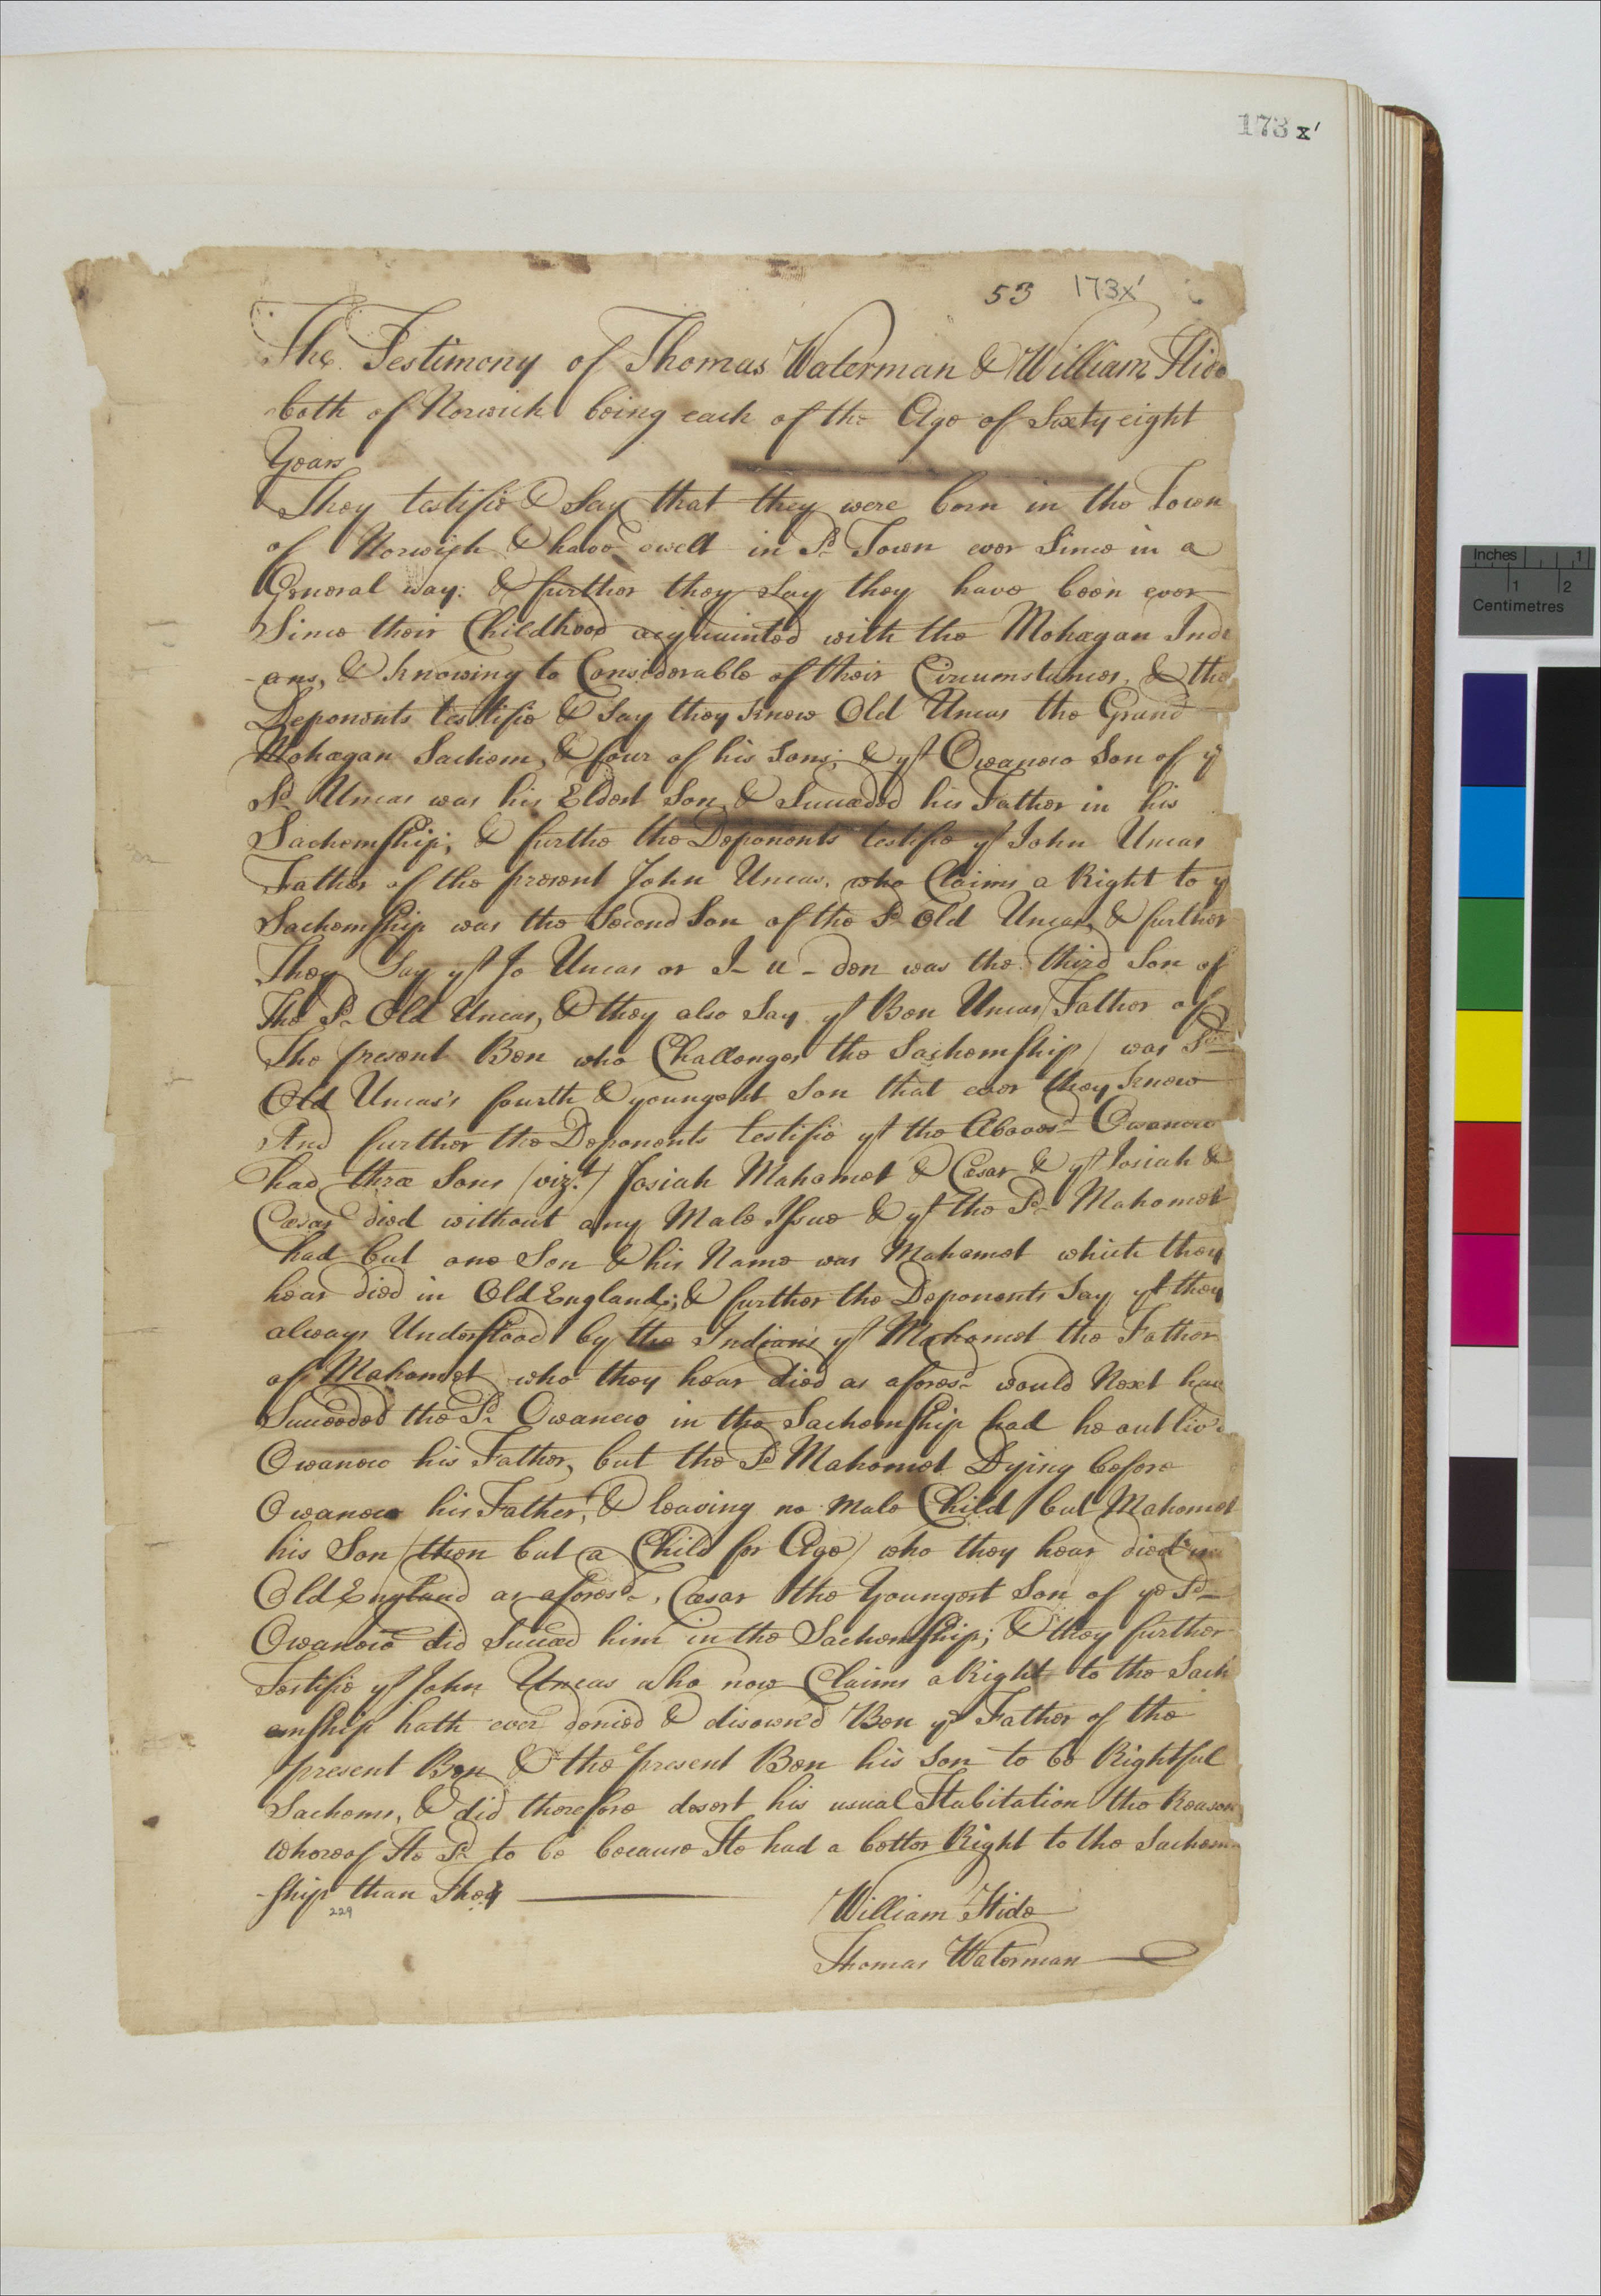 173 x'
53 173x'
The Testimony of Thomas Waterman & William Hide
both of Norwich being each of the Age of Sixty eight
Years
They testifie & Say that they were born in the Town
of Norwich & have dwelt in Sd Town ever Since in a
General way: & further they Say they have been ever
Since their Childhood acquainted with the Mohagan Indi
-ans, & knowing to Considerable of their Circumstances, & the
Deponents testifie & Say they knew Old Uncas the Grand
Mohagan Sachem, & four of his Sons; & yt Owaneco Son of ye
Sd Uncas was his Eldest Son & Succeeded his Father in his
Sachemship; & furthe the Deponents testifie yt John Uncas
Father of the present John Uncas, who Claims a Right to ye
Sachemship was the Second Son of the Sd Old Uncas, & further
They Say yt Jo Uncas or J-u-don was the third Son of
The Sd Old Uncas, & they also Say yt Ben Uncas (Father of
The present Ben who Challenges the Sachemship) was Sd
Old Uncas's fourth & youngest Son that ever they knew
And further the Deponents testifie yt the Abovesd Owaneco
had three Sons (vizt) Josiah Mahomet & Cæsar & yt Josiah &
Cæsar died without any Male Issue & yt the Sd Mahomet
had but one Son & his Name was Mahomet which they
hear died in Old England; & further the Deponents Say yt they
always Understood by the Indians yt Mahomet the Father
of Mahomet who they hear died as aforesd would Next have
Succeeded the Sd Owaneco in the Sachemship had he outliv'd
Owaneco his Father, but the Sd Mahomet Dying before
Owaneco his Father, & leaving no Male Child but Mahomet
his Son (then but a Child for Age) who they hear died in
Old England as aforesd, Cæsar the Youngest Son of ye Sd
Owaneco did Succeed him in the Sachemship; & they further
Testifie yt John Uncas who now Claims a Right to the Sach
emship hath ever denied & disown'd Ben ye Father of the
present Ben & the present Ben his Son to be Rightful
Sachems, & did therefore desert his usual Habitation the Reason
whereof He Sd to be because He had a better Right to the Sachem-
-ship than They
229
William Hide
Thomas Waterman